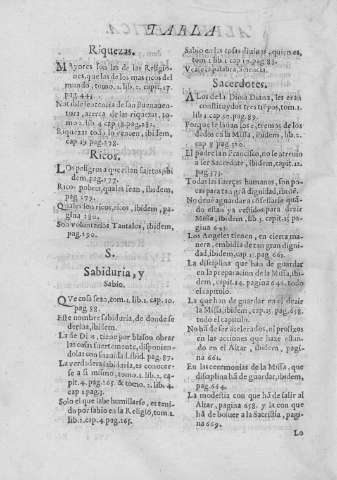 TABLA
Riquezas.
Mayores son las de las Religiones,
que las de los mas ricos del
mundo, tomo. 2. lib. 2. capit. 17.
pag. 445.
Notable sentencia de san Buenaventura,
acerca de las riquezas,
lib. 4 cap 18. pag. 282.
Riquezas todo lo vencen, ibidem,
cap 19. pag. 278.
Ricos.
LOs peligros a que estan sujetos, ibidem,
pag. 177.
Ricos pobres, quales sean, ibidem,
pag. 179.
Quales son ricos, ricos, ibidem, pagina
180.
Son voluntarios Tantalos, ibidem,
pag. 190.
S.
Sabiduria, y
Sabio.
QVe cosa sea, tom. 1. lib. 1. cap. 10.
pag. 88.
Este nombre sabiduria, de donde se
deriua, ibidem.
La de Dios, tiene por blason obrar
las cosas fuertemente, disponiendolas
con suauidad, ibid. pag. 87.
La verdadera sabiduria, es conocerse
a si mismo, tomo 1. lib. 1.
cap 1 pag. 3.
Solo el que sabe humillarse, es tenido
por sabio en la Religiō, tom. 1.
lib. 2. cap. 4. pag. 165.
Sabio en las cosas diuinas, quien es,
tom 1 lib 1 cap 10. pag. 88.
Vease la palabra,
Sacerdotes.
A Los de la Diosa Diana,
lib. 1
cap.
dedos en la Missa, ibidem, lib. 2
El padre san Francisco, no se atreuio
a ser Sacerdote, ibidem, capit. 12.
pag. 373.
Todas las fuerças humanas, son pocas
para tan grande dignidad, ibid.
No deue aguardar a confessarse quando
estan ya vestidos para dezir
Missa, ibidem, lib. 3. capit. 15
pagina 645.
Los Angeles tienen, en cierta manera,
embidia de tan gran dignidad,
ibidem, cap. 15. pag. 665.
La disciplina que han de guardar
en la preparacion de la Missa, ibidem,
capit. 24. pag. 656. todo
el capitulo.
La que han de guardar en el dezir
la Missa, ibidem, cap. 25. pag. 658.
todo el capitulo.
No hã de ser acelerados, ni prolixos
en las acciones que haze estando
en el Altar, ibidem, pagina
661.
En las ceremonias de la Missa, que
disciplina hã de guardar, ibidem,
pag. 664.
La modestia con que hã de salir al
Altar, pagina 658. y la con que
hã de boluer a la Sacristia, pagina
669.
Lo